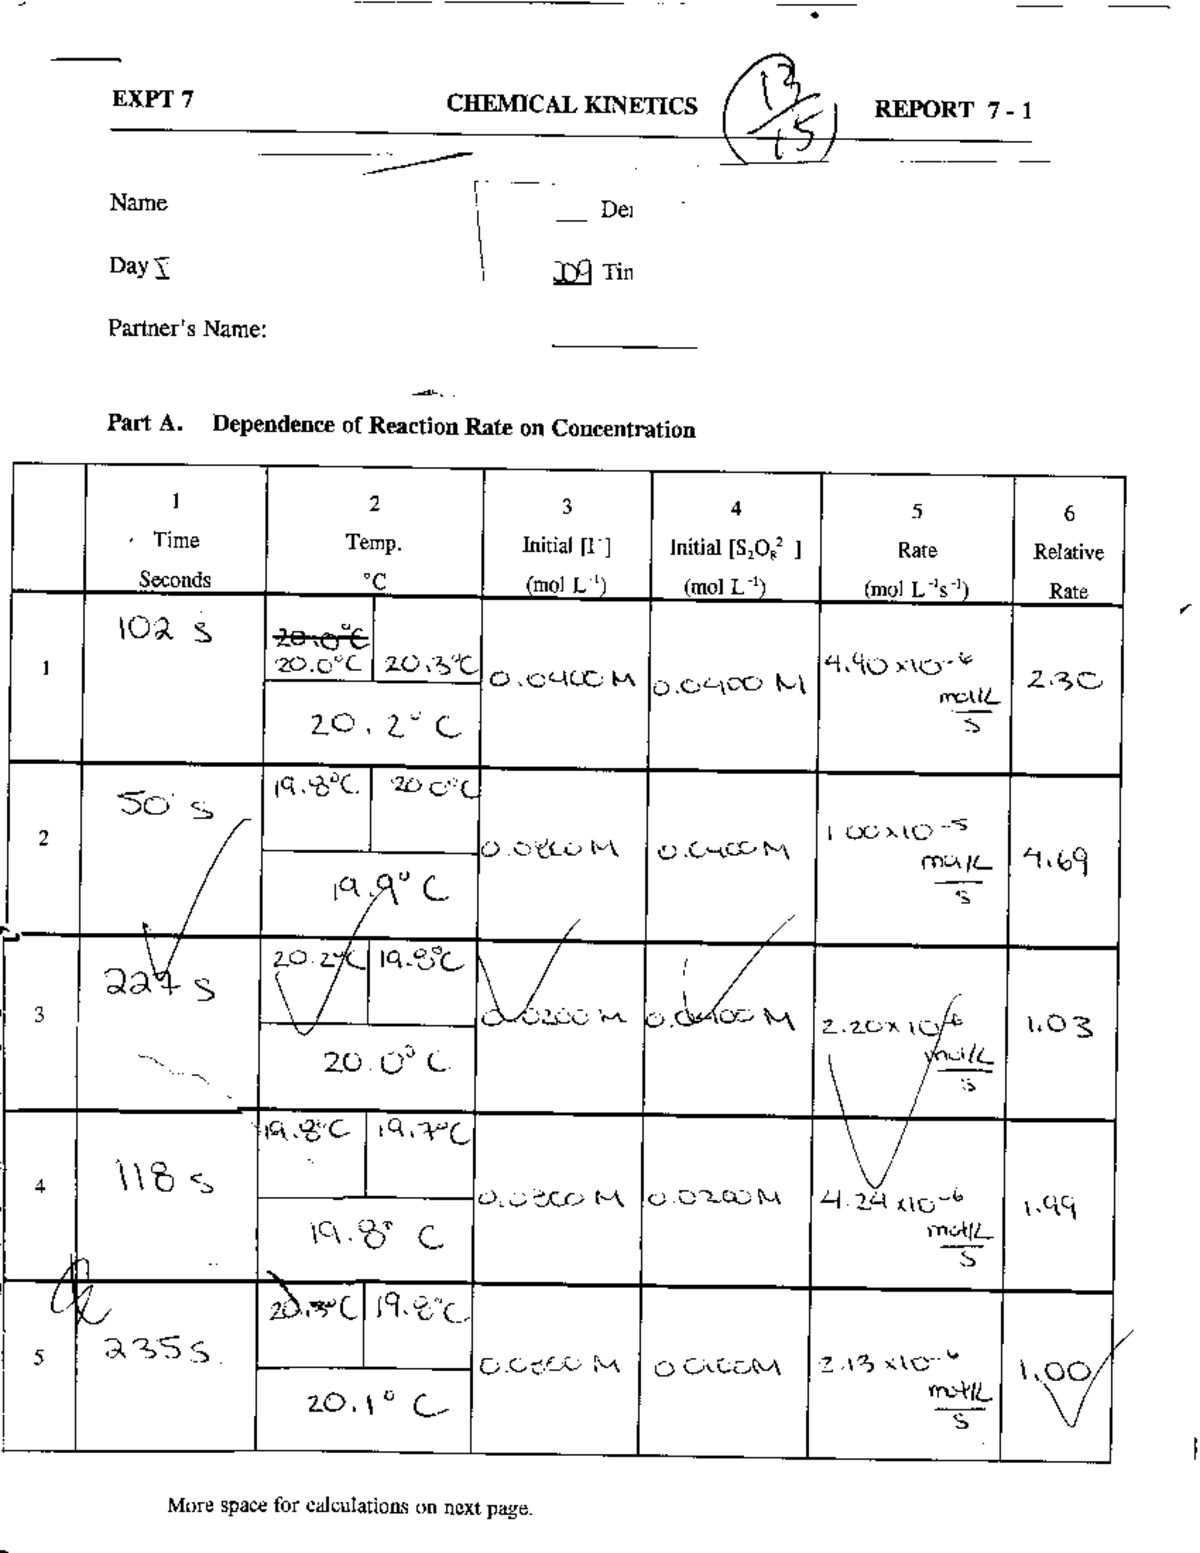 EXPT 7 CHEMICAL KINETICS 13/15 REPORT 7 - 1
Name
Day
Tim
Partner's Name:
Part A. Dependence of Reaction Rate on Concentration
1 2 3 4 5 6
Time Temp. Initial [I⁻] Initial [S₂O₈² ] Rate Relative
Seconds °C (mol L⁻¹) (mol L⁻¹) (mol L⁻¹s⁻¹) Rate
1 102 s 20.0°C 20.3°C 20.2°C 0.0400 M 0.0400 M 4.90 x10⁻⁶ mol/L/s 2.30
2 50 s 19.8°C 20.0°C 19.9°C 0.0800 M 0.0400 M 1.00 x10⁻⁵ mol/L/s 4.69
3 227 s 20.2°C 19.8°C 20.0°C 0.0200 M 0.0400 M 2.20 x10⁻⁶ mol/L/s 1.03
4 118 s 19.8°C 19.7°C 19.8°C 0.0800 M 0.0200 M 4.24 x10⁻⁶ mol/L/s 1.99
5 235 s 20.3°C 19.8°C 20.1°C 0.0800 M 0.0100 M 2.13 x10⁻⁶ mol/L/s 1.00
More space for calculations on next page.